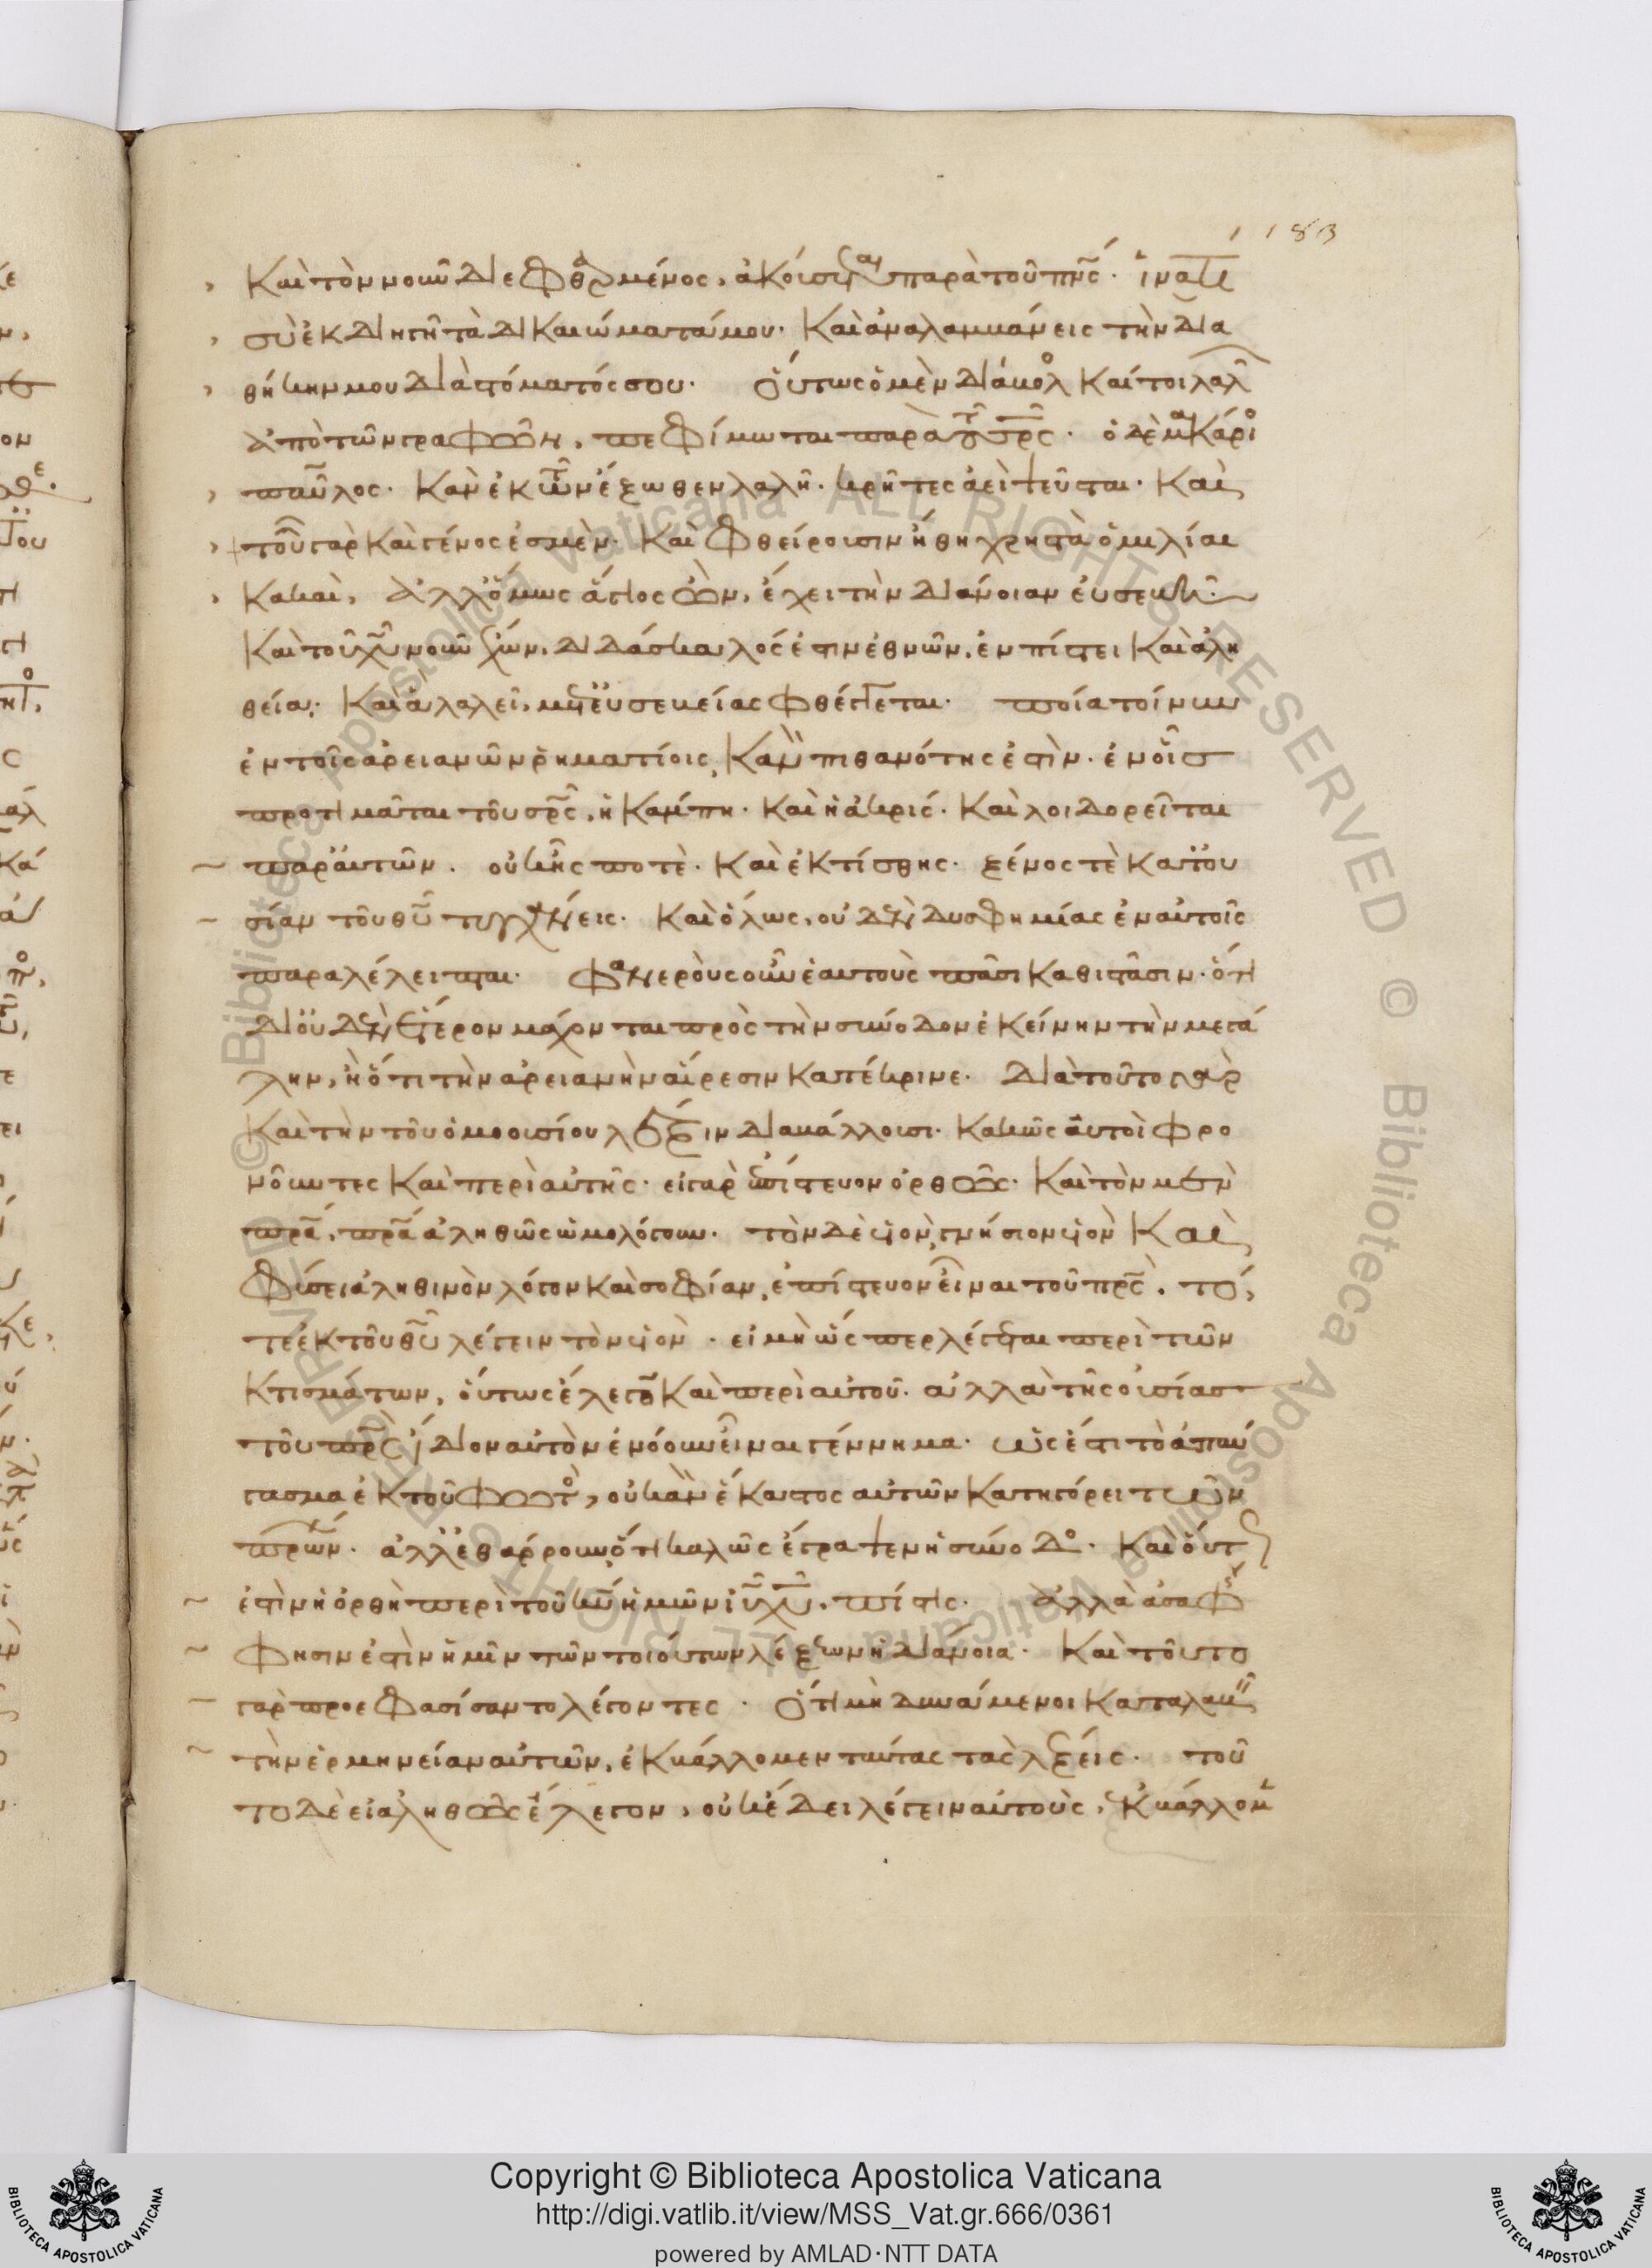 183
Καὶ τὸν νοῦν διεφθαρμένος, ἀκούσηται παρὰ τοῦ πνς. ἱνατί
σὺ ἐκδιηγῆ τὰ δικαιώματά μου. Καὶ ἀναλαμβάνεις τὴν δια
θήκην μου διὰ στόματός σου. οὕτως ὁ μὲν διάβολ καίτοι λαλ
ἀπὸ τῶν γραφῶν, πεφίμωται παρὰ τ σρς. ὁ δὲ μακάρι
παῦλος. Κἂν ἐκ τῶν ἔξωθεν λαλῆ. κρῆτες ἀεὶ ψεῦσται. Καὶ
τοῦ γὰρ καὶ γένος ἐσμὲν. Καὶ φθείρουσιν ἤθη χρηστὰ ὁμιλίαι
κακαὶ, ἀλλ' ὅμως ἅγιος ὢν, ἔχει τὴν διάνοιαν εὐσεβῆ.
Καὶ τοῦ χυ νοῦν ἔχων, διδάσκαλός ἐστιν ἐθνῶν, ἐν πίστει καὶ ἀλη
θεία. Καὶ ἃ λαλεῖ, μετ' εὐσεβείας φθέγγεται. ποία τοίνυν
ἐν τοῖς ἀρειανῶν ῥηματίοις, κἂν πιθανότης ἐστὶν. ἐν οἷς
προτιμᾶται τοῦ σρς, ἡ κάμπη. καὶ ἡ ἀκρίς. Καὶ λοιδορεῖται
παρ' αὐτῶν. οὐκ ἦς ποτὲ. καὶ ἐκτίσθης. ξένος τὲ κατ' οὐ
σίαν τοῦ θυ τυγχάνεις. Καὶ ὅλως, οὐδὲν δυσφημίας ἐν αὐτοῖς
παραλέλειπται. φανεροὺς οὖν ἑαυτοὺς πᾶσι καθιστᾶσιν. ὅτι
δι' οὐδὲν ἕτερον μάχονται πρὸς τὴν σύνοδον ἐκείνην τὴν μεγά
λην, ἢ ὅτι τὴν ἀρειανὴν αἵρεσιν κατέκρινε. Διὰ τοῦτο γὰρ
Καὶ τὴν τοῦ ὁμοουσίου λέξιν διαβάλλουσι. κακῶς αὐτοὶ φρο
νοῦντες καὶ περὶ αὐτῆς. εἰ γὰρ ἐπίστευον ὀρθῶς. Καὶ τὸν μὲν
πρα, πρα ἀληθῶς ὡμολόγουν. τὸν δὲ υἱὸν, γνήσιον υἱὸν καὶ
φύσει ἀληθινὸν λόγον καὶ σοφίαν, ἐπίστευον εἶναι τοῦ πρς. τό,
τε ἐκ τοῦ θυ λέγειν τὸν υἱὸν. εἰ μὴ ὥς περ λέγεται περὶ τῶν
κτισμάτων, οὕτως ἔλεγον καὶ περὶ αὐτοῦ. ἀλλὰ τῆς οὐσίας
τοῦ πρς ἴδιον αὐτὸν ἐνόουν εἶναι γέννημα. ὡς ἐστι τὸ ἀπαύ
γασμα ἐκ τοῦ φωτὸ, οὐκ ἂν ἕκαστος αὐτῶν κατηγόρει τῶν
πρων. ἀλλ' ἐθάρρουν, ὅτι καλῶς ἔγραψεν ἡ σύνοδο. καὶ οὕτ
ἐστὶν ἡ ὀρθὴ περὶ τοῦ κυ ἡμῶν ιυ χυ, πίστις. Ἀλλὰ ἀσαφ
φησιν ἐστὶν ἡμῖν τῶν τοιούτων λέξεων ἡ διάνοια. Καὶ τοῦτο
γὰρ προεφασίσαντο λέγοντες. ὅτι μὴ δυνάμενοι καταλαβ
τὴν ἑρμηνείαν αὐτῶν, ἐκβάλλομεν ταύτας τὰς λέξεις. τοῦ
το δὲ εἰ ἀληθῶς ἔλεγον, οὐκ ἔδει λέγειν αὐτοὺς, ἐκβάλλομ
© Biblioteca Apostolica Vaticana ALL RIGHTS RESERVED
© Biblioteca Apostolica Vaticana ALL RIGHTS RESERVED
BIBLIOTECA APOSTOLICA VATICANA
Copyright © Biblioteca Apostolica Vaticana
http://digi.vatlib.it/view/MSS_Vat.gr.666/0361
powered by AMLAD·NTT DATA
BIBLIOTECA APOSTOLICA VATICANA